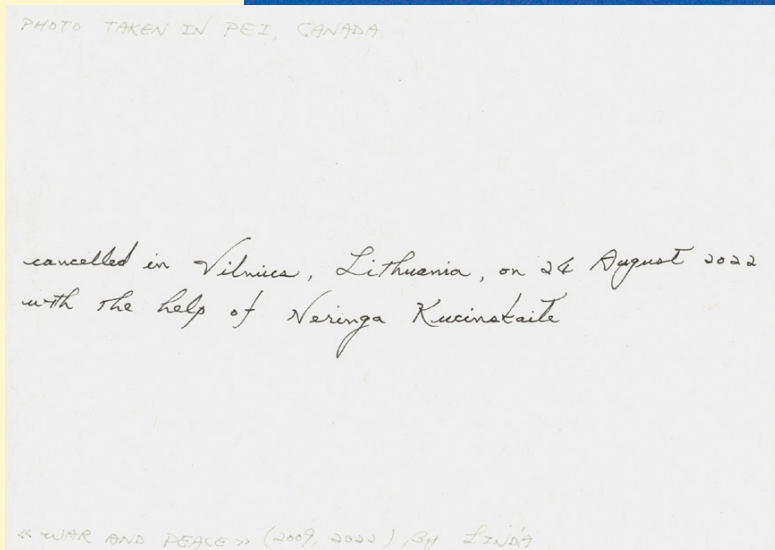 PHOTO TAKEN IN PEI, CANADA
cancelled in Vilnius, Lithuania, on 24 August 2022
with the help of Neringa Kucinskaite
« WAR AND PEACE » (2009, 2022) By LINDA